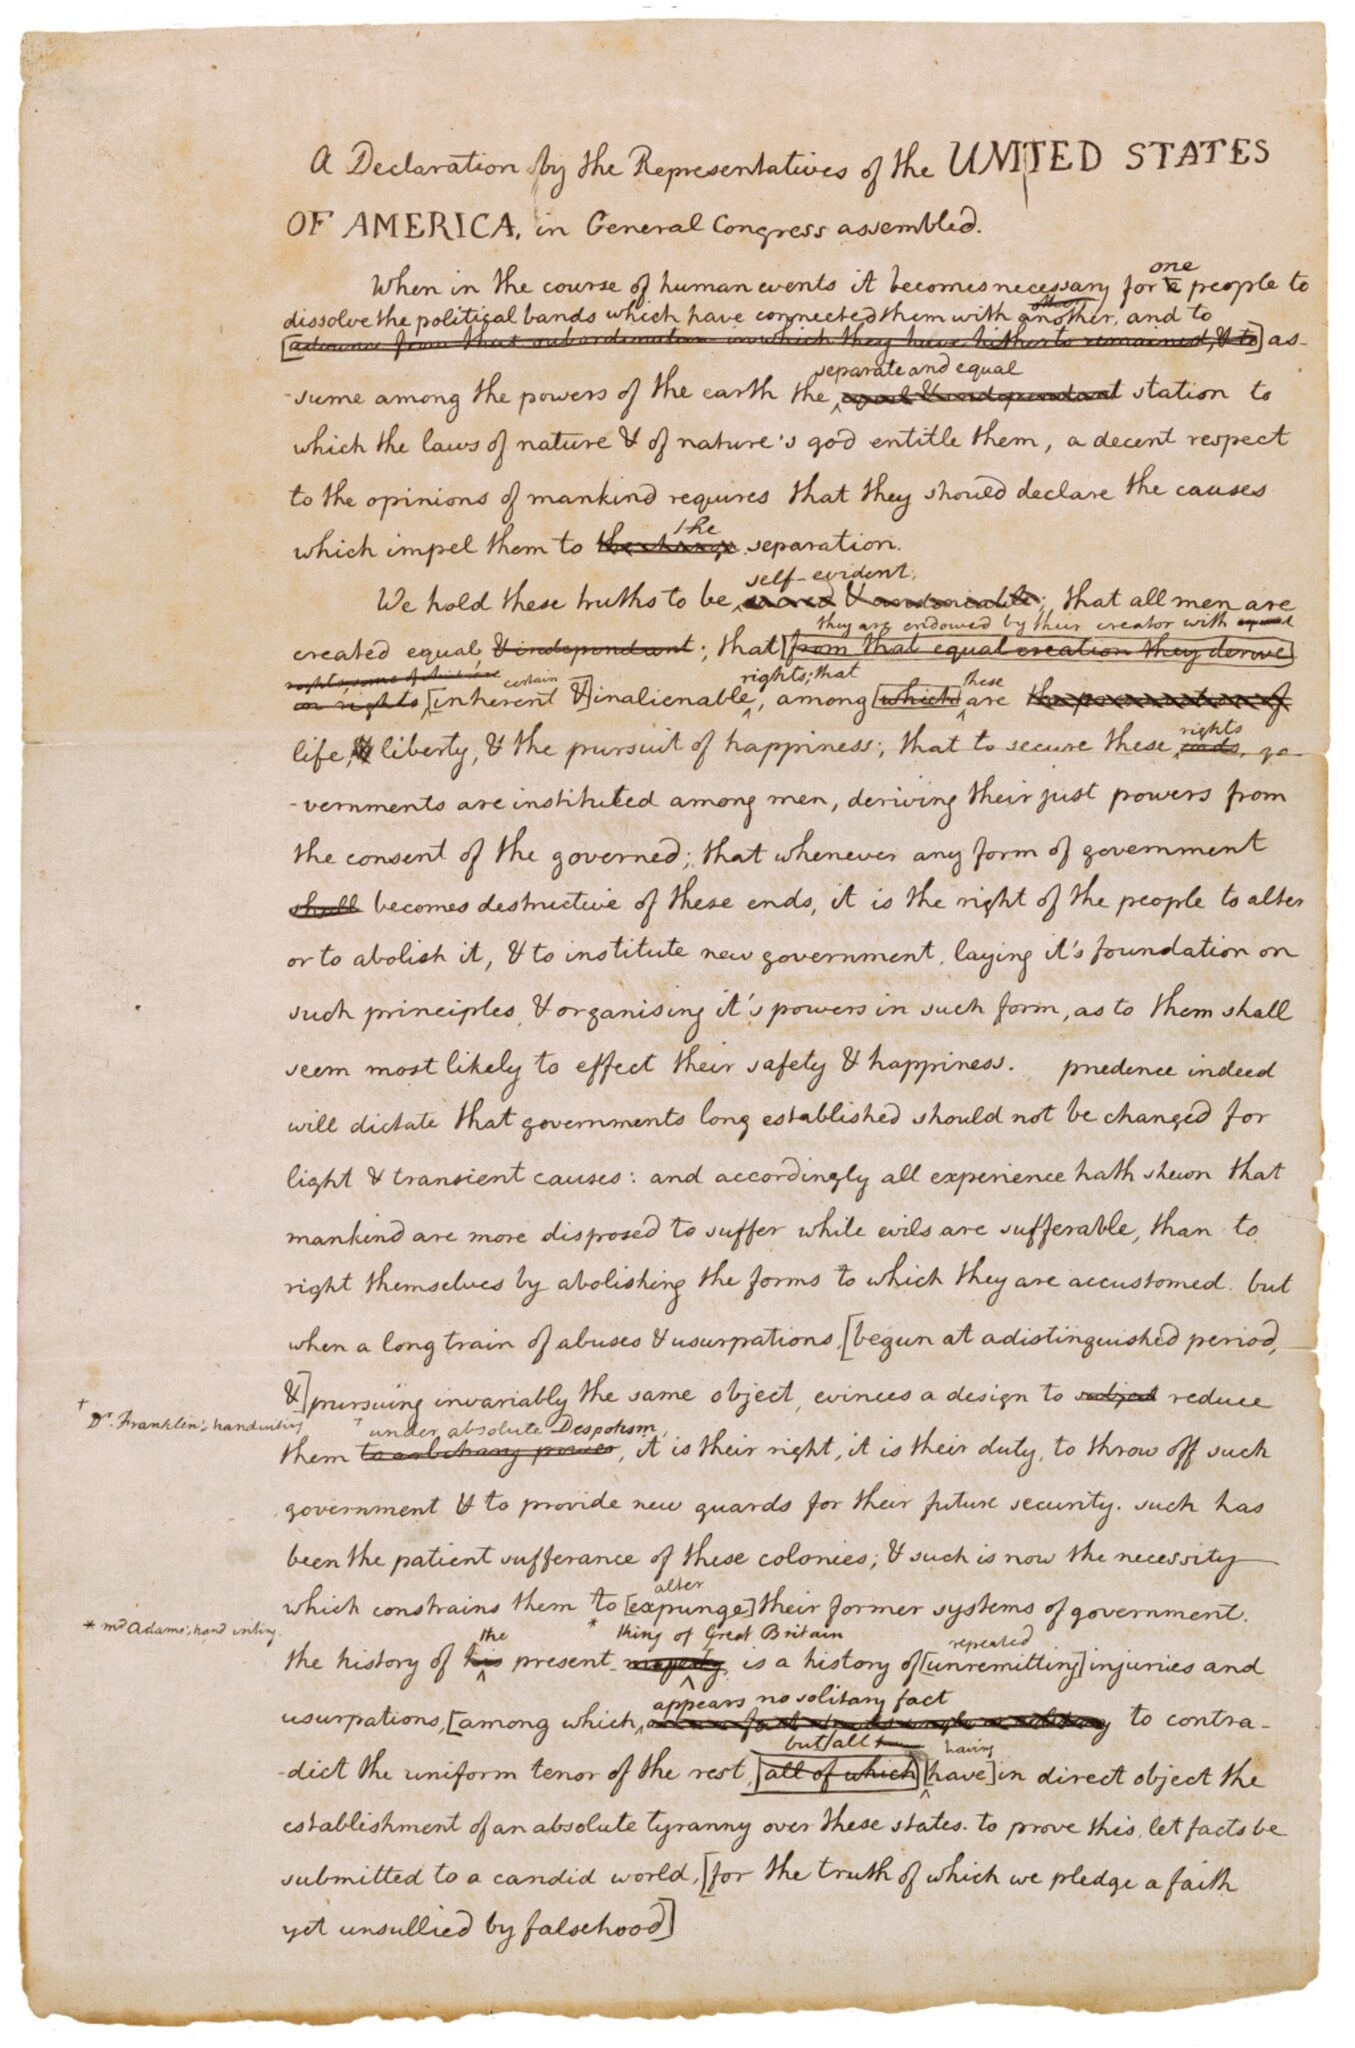 A Declaration by the Representatives of the UNITED STATES
OF AMERICA, in General Congress assembled.
one
When in the course of human events it becomes necessary for a people to
dissolve the political bands which have connected them with another, and to
advance from that subordination in which they have hitherto remained, & to] as-
separate and equal
-sume among the powers of the earth the equal & independant station to
which the laws of nature & of nature's god entitle them, a decent respect
to the opinions of mankind requires that they should declare the causes
the
which impel them to the change separation.
self-evident;
We hold these truths to be sacred & undeniable; that all men are
they are endowed by their creator with
created equal, & independant; that [from that equal creation they derive]
rights; some of which are certain rights; that these
in rights [inherent &] inalienable, among [which] are the preservation of
rights
life, & liberty, & the pursuit of happiness; that to secure these ends, go-
-vernments are instituted among men, deriving their just powers from
the consent of the governed; that whenever any form of government
shall becomes destructive of these ends, it is the right of the people to alter
or to abolish it, & to institute new government, laying it's foundation on
such principles, & organising it's powers in such form, as to them shall
seem most likely to effect their safety & happiness. prudence indeed
will dictate that governments long established should not be changed for
light & transient causes: and accordingly all experience hath shewn that
mankind are more disposed to suffer while evils are sufferable, than to
right themselves by abolishing the forms to which they are accustomed. but
when a long train of abuses & usurpations, [begun at a distinguished period,
&] pursuing invariably the same object, evinces a design to subject reduce
† Dr. Franklin's handwriting
† under absolute Despotism,
them to arbitrary power, it is their right, it is their duty, to throw off such
government & to provide new guards for their future security. such has
been the patient sufferance of these colonies; & such is now the necessity
alter
which constrains them to [expunge] their former systems of government.
* Mr Adams' hand writing.
the * king of Great Britain repeated
the history of his present majesty, is a history of [unremitting] injuries and
appears no solitary fact
usurpations, [among which, to contra-
but all having
-dict the uniform tenor of the rest, [all of which] [have] in direct object the
establishment of an absolute tyranny over these states. to prove this, let facts be
submitted to a candid world, [for the truth of which we pledge a faith
yet unsullied by falsehood]